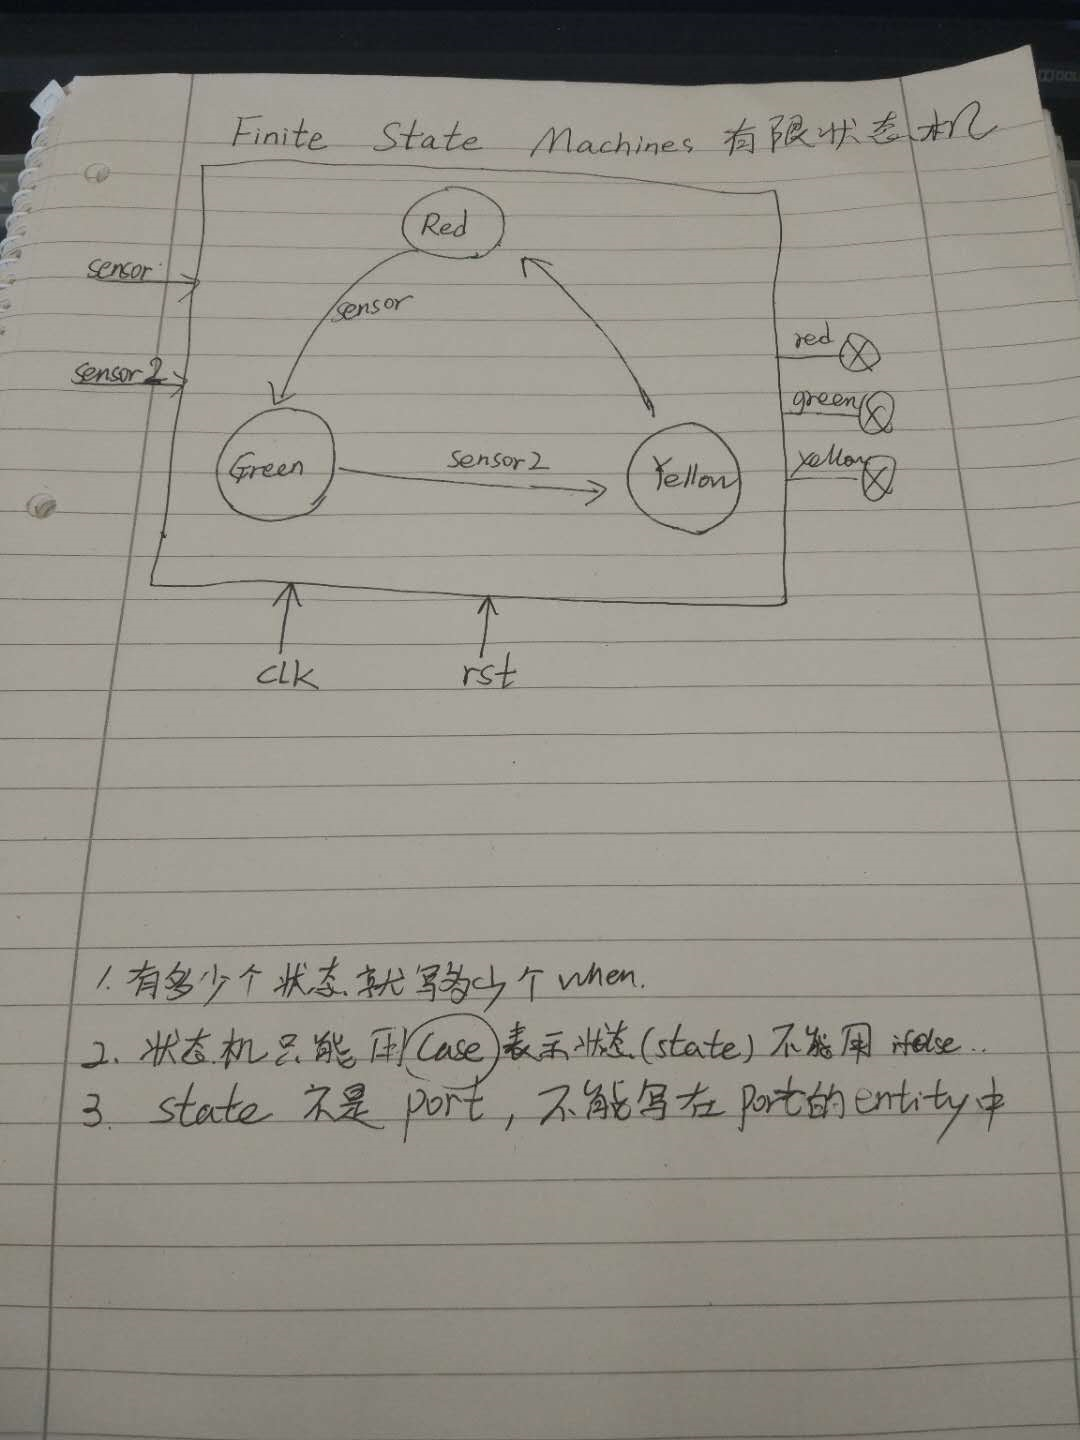 Finite State Machines 有限状态机
Red
sensor
sensor
red
sensor2
green
Green
sensor2
Yellow
yellow
clk
rst
1. 有多少个状态就写多少个when.
2. 状态机只能用case表示状态(state)不能用ifelse..
3. state 不是 port, 不能写在port的entity中